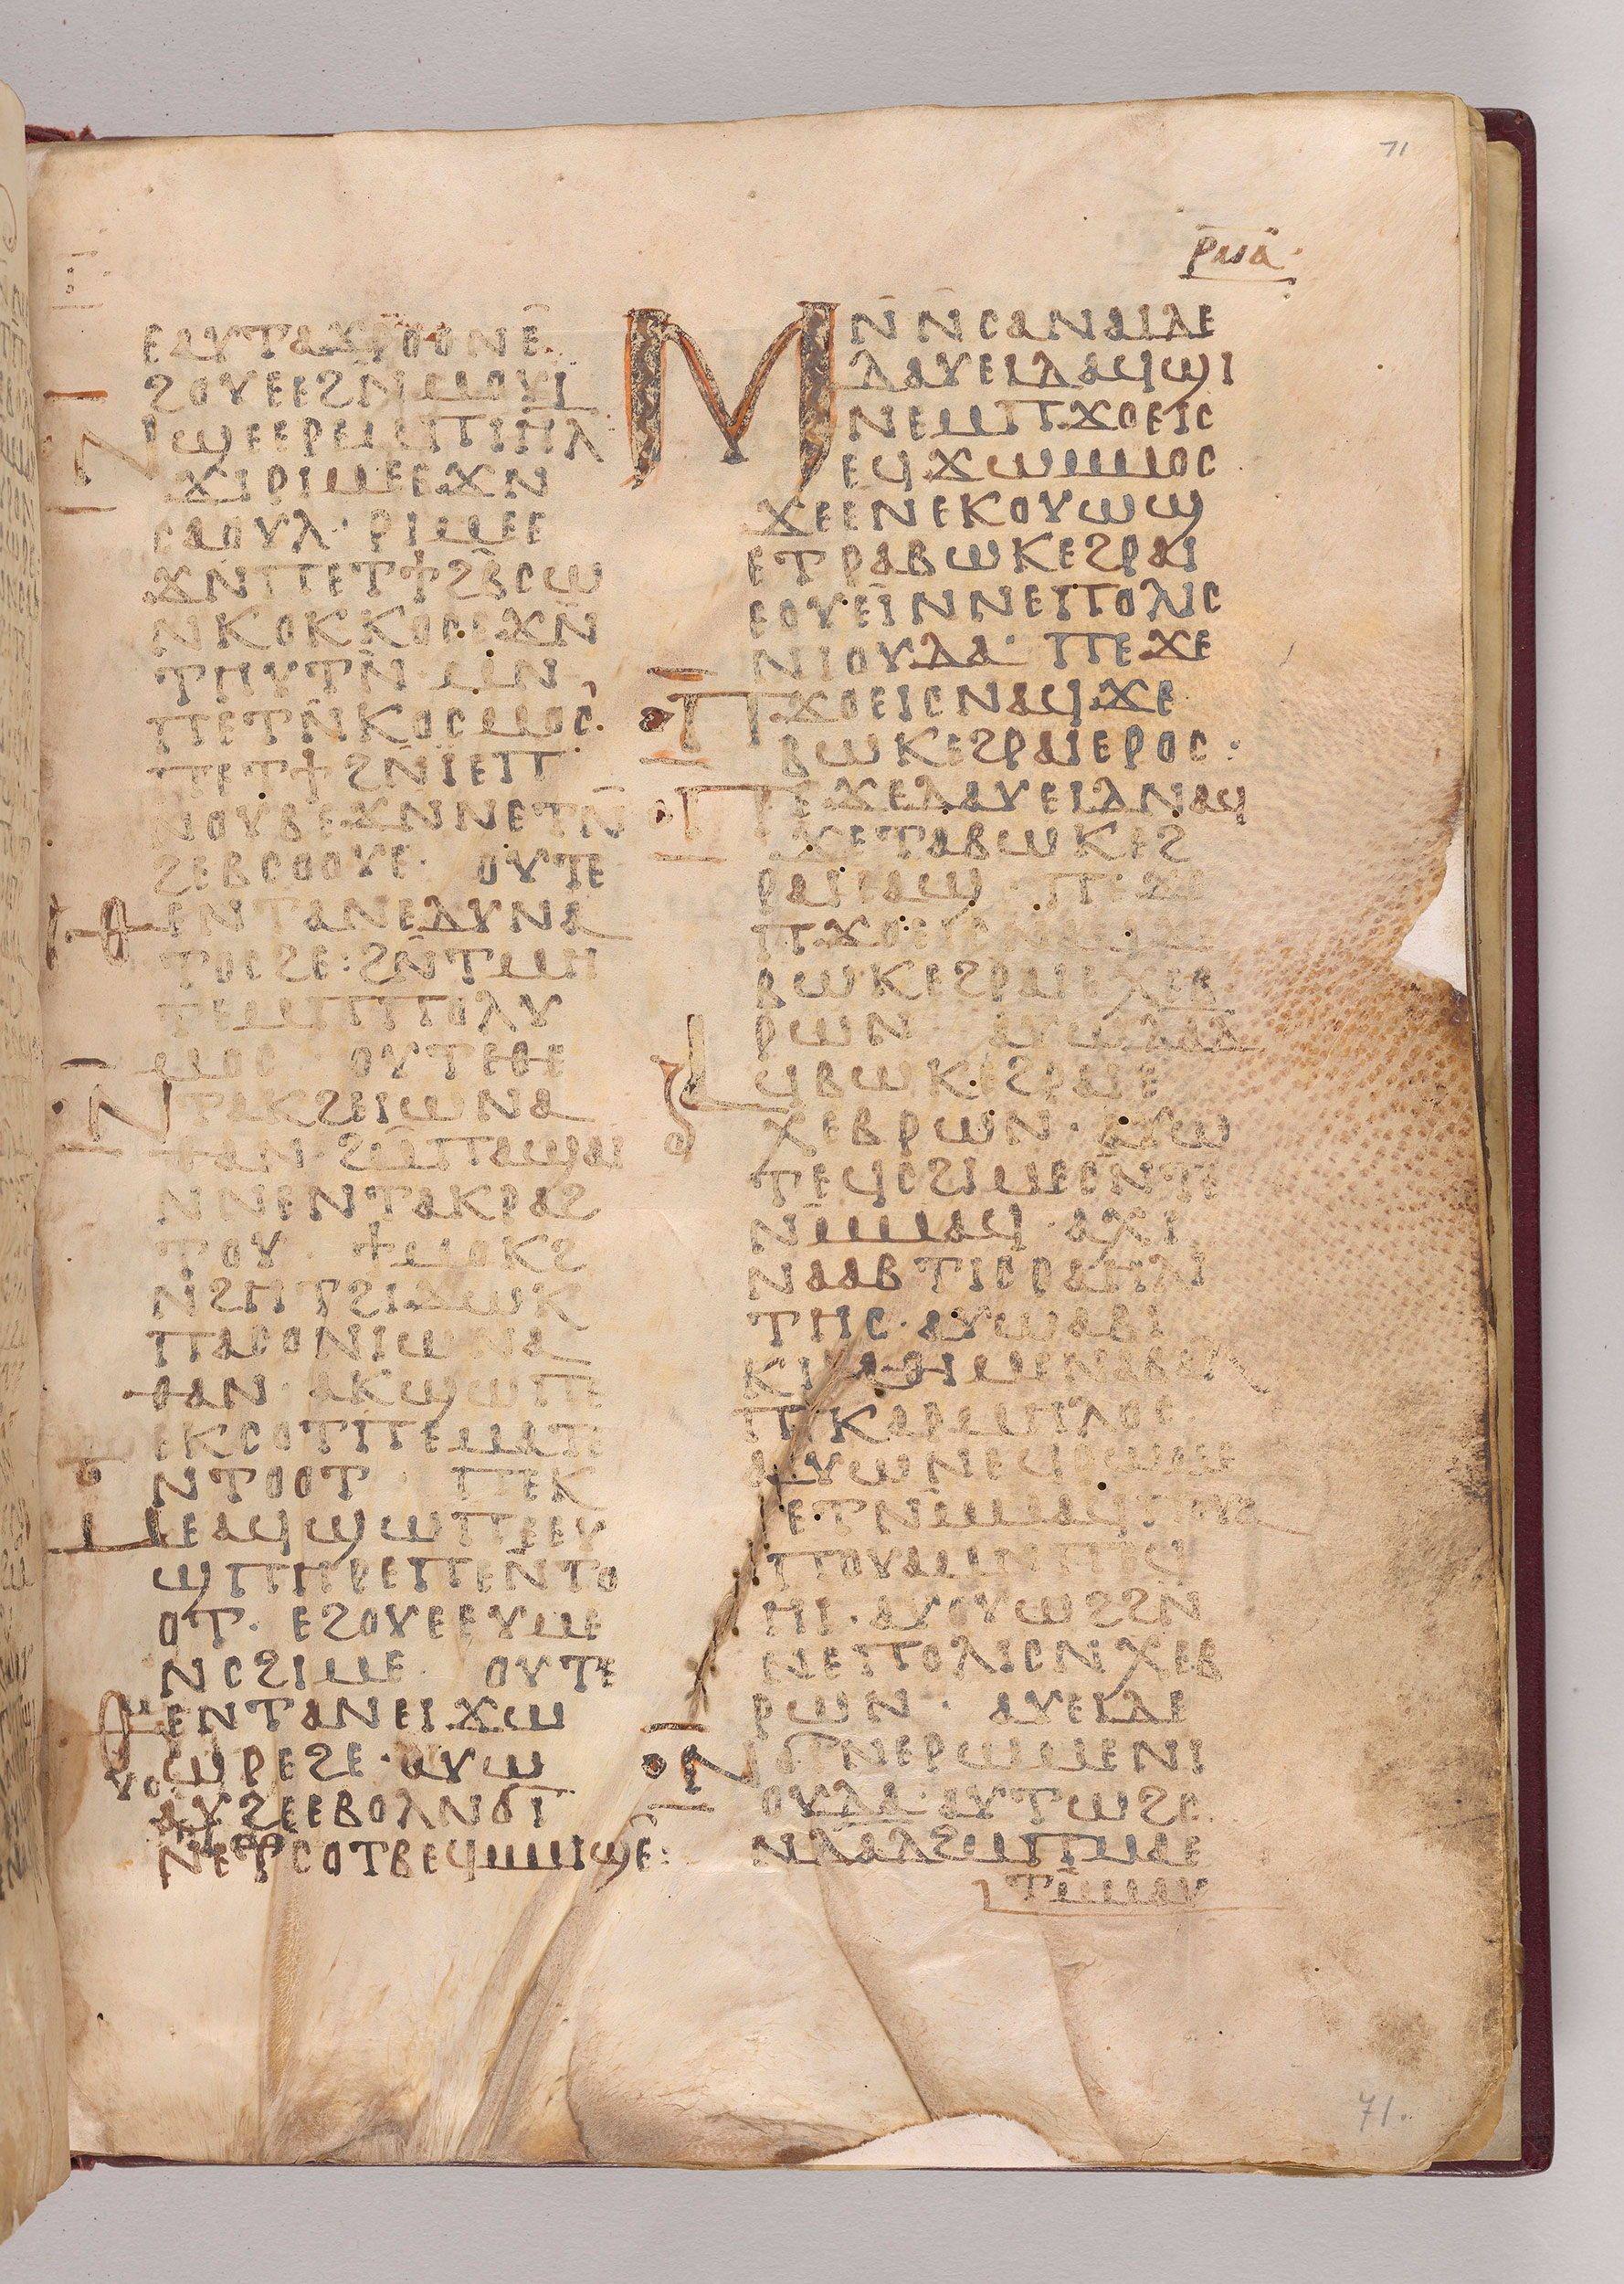 71
ⲣⲙⲁ
ⲉⲁⲩⲧⲁϫⲣⲟⲟⲩ ⲛⲉ̄
ϩⲟⲩⲉⲉϩⲛ̄ⲙⲟⲩⲓ̈
ⲛϣⲉⲉⲣⲉⲙⲡⲓⲏⲗ
ϫⲓⲣⲓⲙⲉⲉϫⲛ
ⲥⲁⲟⲩⲗ· ⲣⲓⲙⲉⲉ
ϫⲛ̄ⲡⲉⲧϯϩⲃ̄ⲥⲱ
ⲛⲕⲟⲕⲕⲟⲥ· ⲉϫⲛ̄
ⲧⲏⲩⲧⲛ̄ ⲙⲛ
ⲡⲉⲧⲛ̄ⲕⲟⲥⲙⲟⲥ·
ⲡⲉⲧϯϩⲛ̄ⲓ̈ⲉⲡ
ⲛⲟⲩⲃⲉϫⲛⲛⲉⲧⲛ̄
ϩⲉⲃⲥⲟⲟⲩⲉ· ⲟⲩⲧⲉ
ⲑⲉⲛⲧⲁⲛⲉⲇⲩⲛⲁ
ⲧⲟⲥϩⲉ: ϩⲛ̄ⲧⲙⲏ
ⲧⲉⲙⲡⲡⲟⲗⲩ
ⲙⲟⲥ· ⲟⲩⲧⲉⲑⲉ
ⲛⲧⲁⲕϩⲉⲓⲱⲛⲁ
ⲑⲁⲛ· ϩⲙ̄ⲡⲁϣⲁⲓ
ⲛⲛⲉⲛⲧⲁⲕⲣⲁϩ
ⲧⲟⲩ· ϯⲙⲟⲕϩ
ⲛ̄ϩⲏⲧϩⲓϫⲱⲕ
ⲡⲁⲥⲟⲛⲓⲱⲛⲁ
ⲑⲁⲛ· ⲁⲕϣⲱⲡⲉ
ⲉⲕⲥⲟⲧⲡⲉⲙⲁⲧⲉ
ⲛⲧⲟⲟⲧ· ⲡⲉⲕ
ⲙⲉⲁϥϣⲱⲡⲉⲉⲩ
ϣⲡⲏⲣⲉⲡⲉⲛ̄ⲧⲟ
ⲟⲧ· ⲉϩⲟⲩⲉⲉⲩⲙⲉ
ⲛⲥϩⲓⲙⲉ· ⲟⲩⲧⲉ
ⲑⲉⲛⲧⲁⲛⲉⲓϫⲱ
ⲱⲣⲉϩⲉ· ⲁⲩⲱ
ⲁⲩϩⲉⲉⲃⲟⲗⲛϭⲓ
ⲛⲉⲧⲥⲟⲧⲃⲉϥⲙⲙⲓϣⲉ:
ⲙⲛ̄ⲛⲥⲁⲛⲁⲓⲇⲉ
ⲇⲁⲩⲉⲓⲇⲁϥϣⲓ
ⲛⲉⲙⲡϫⲟⲉⲓⲥ
ⲉϥϫⲱⲙⲙⲟⲥ
ϫⲉⲉⲛⲉⲕⲟⲩⲱϣ
ⲉⲧⲣⲁⲃⲱⲕⲉϩⲣⲁⲓ
ⲉⲟⲩⲉⲓ̈ⲛⲛⲉⲡⲟⲗⲓⲥ
ⲛⲓⲟⲩⲇⲁ· ⲡⲉϫⲉ
ⲡϫⲟⲉⲓⲥⲛⲁϥϫⲉ
ⲃⲱⲕⲉϩⲣⲁⲓⲉⲣⲟⲥ·
ⲡⲉϫⲉⲇⲁⲩⲉⲓⲇⲛⲁϥ
ϫⲉⲧⲁⲃⲱⲕⲉϩ
ⲣⲁⲓⲉⲁϣ· ⲡⲉϫⲉ
ⲡϫⲟⲉⲓⲥⲛⲁϥϫⲉ
ⲃⲱⲕⲉϩⲣⲁⲓⲉⲭⲉⲃ
ⲣⲱⲛ ⲁⲩⲱⲇⲁⲇ
ⲁϥⲃⲱⲕⲉϩⲣⲁⲓⲉ
ⲭⲉⲃⲣⲱⲛ· ⲁⲩⲱ
ⲧⲉϥⲥϩⲓⲙⲉⲥⲛ̄ⲧⲉ
ⲛⲙ̄ⲙⲁϥ· ⲁⲭⲓ
ⲛⲁⲁⲃⲧⲓⲥⲣⲁⲏⲗⲓ
ⲧⲏⲥ· ⲁⲩⲱⲁⲃⲓ
ⲕⲓⲁⲑⲓⲙⲉⲛⲁⲃⲁⲗ
ⲡⲕⲁⲣⲙⲏⲗⲟⲥ
ⲁⲩⲱⲛⲉϥⲣⲱⲙⲉ
ⲉⲧⲛⲙ̄ⲙⲁϥ· ⲡⲟⲩⲁ
ⲡⲟⲩⲁⲙⲛⲡⲉϥ
ⲏⲓ· ⲁⲩⲟⲩⲱϩϩⲛ
ⲛⲉⲡⲟⲗⲓⲥⲛⲭⲉⲃ
ⲣⲱⲛ· ⲁⲩⲉⲓⲇⲉ
ⲛϭⲓⲛⲉⲣⲱⲙⲉⲛⲓ
ⲟⲩⲇⲁ· ⲁⲩⲧⲱϩⲥ
ⲛⲇⲁⲇϩⲙⲡⲙⲁⲉ
ⲧⲙ̄ⲙⲁⲩ
71.